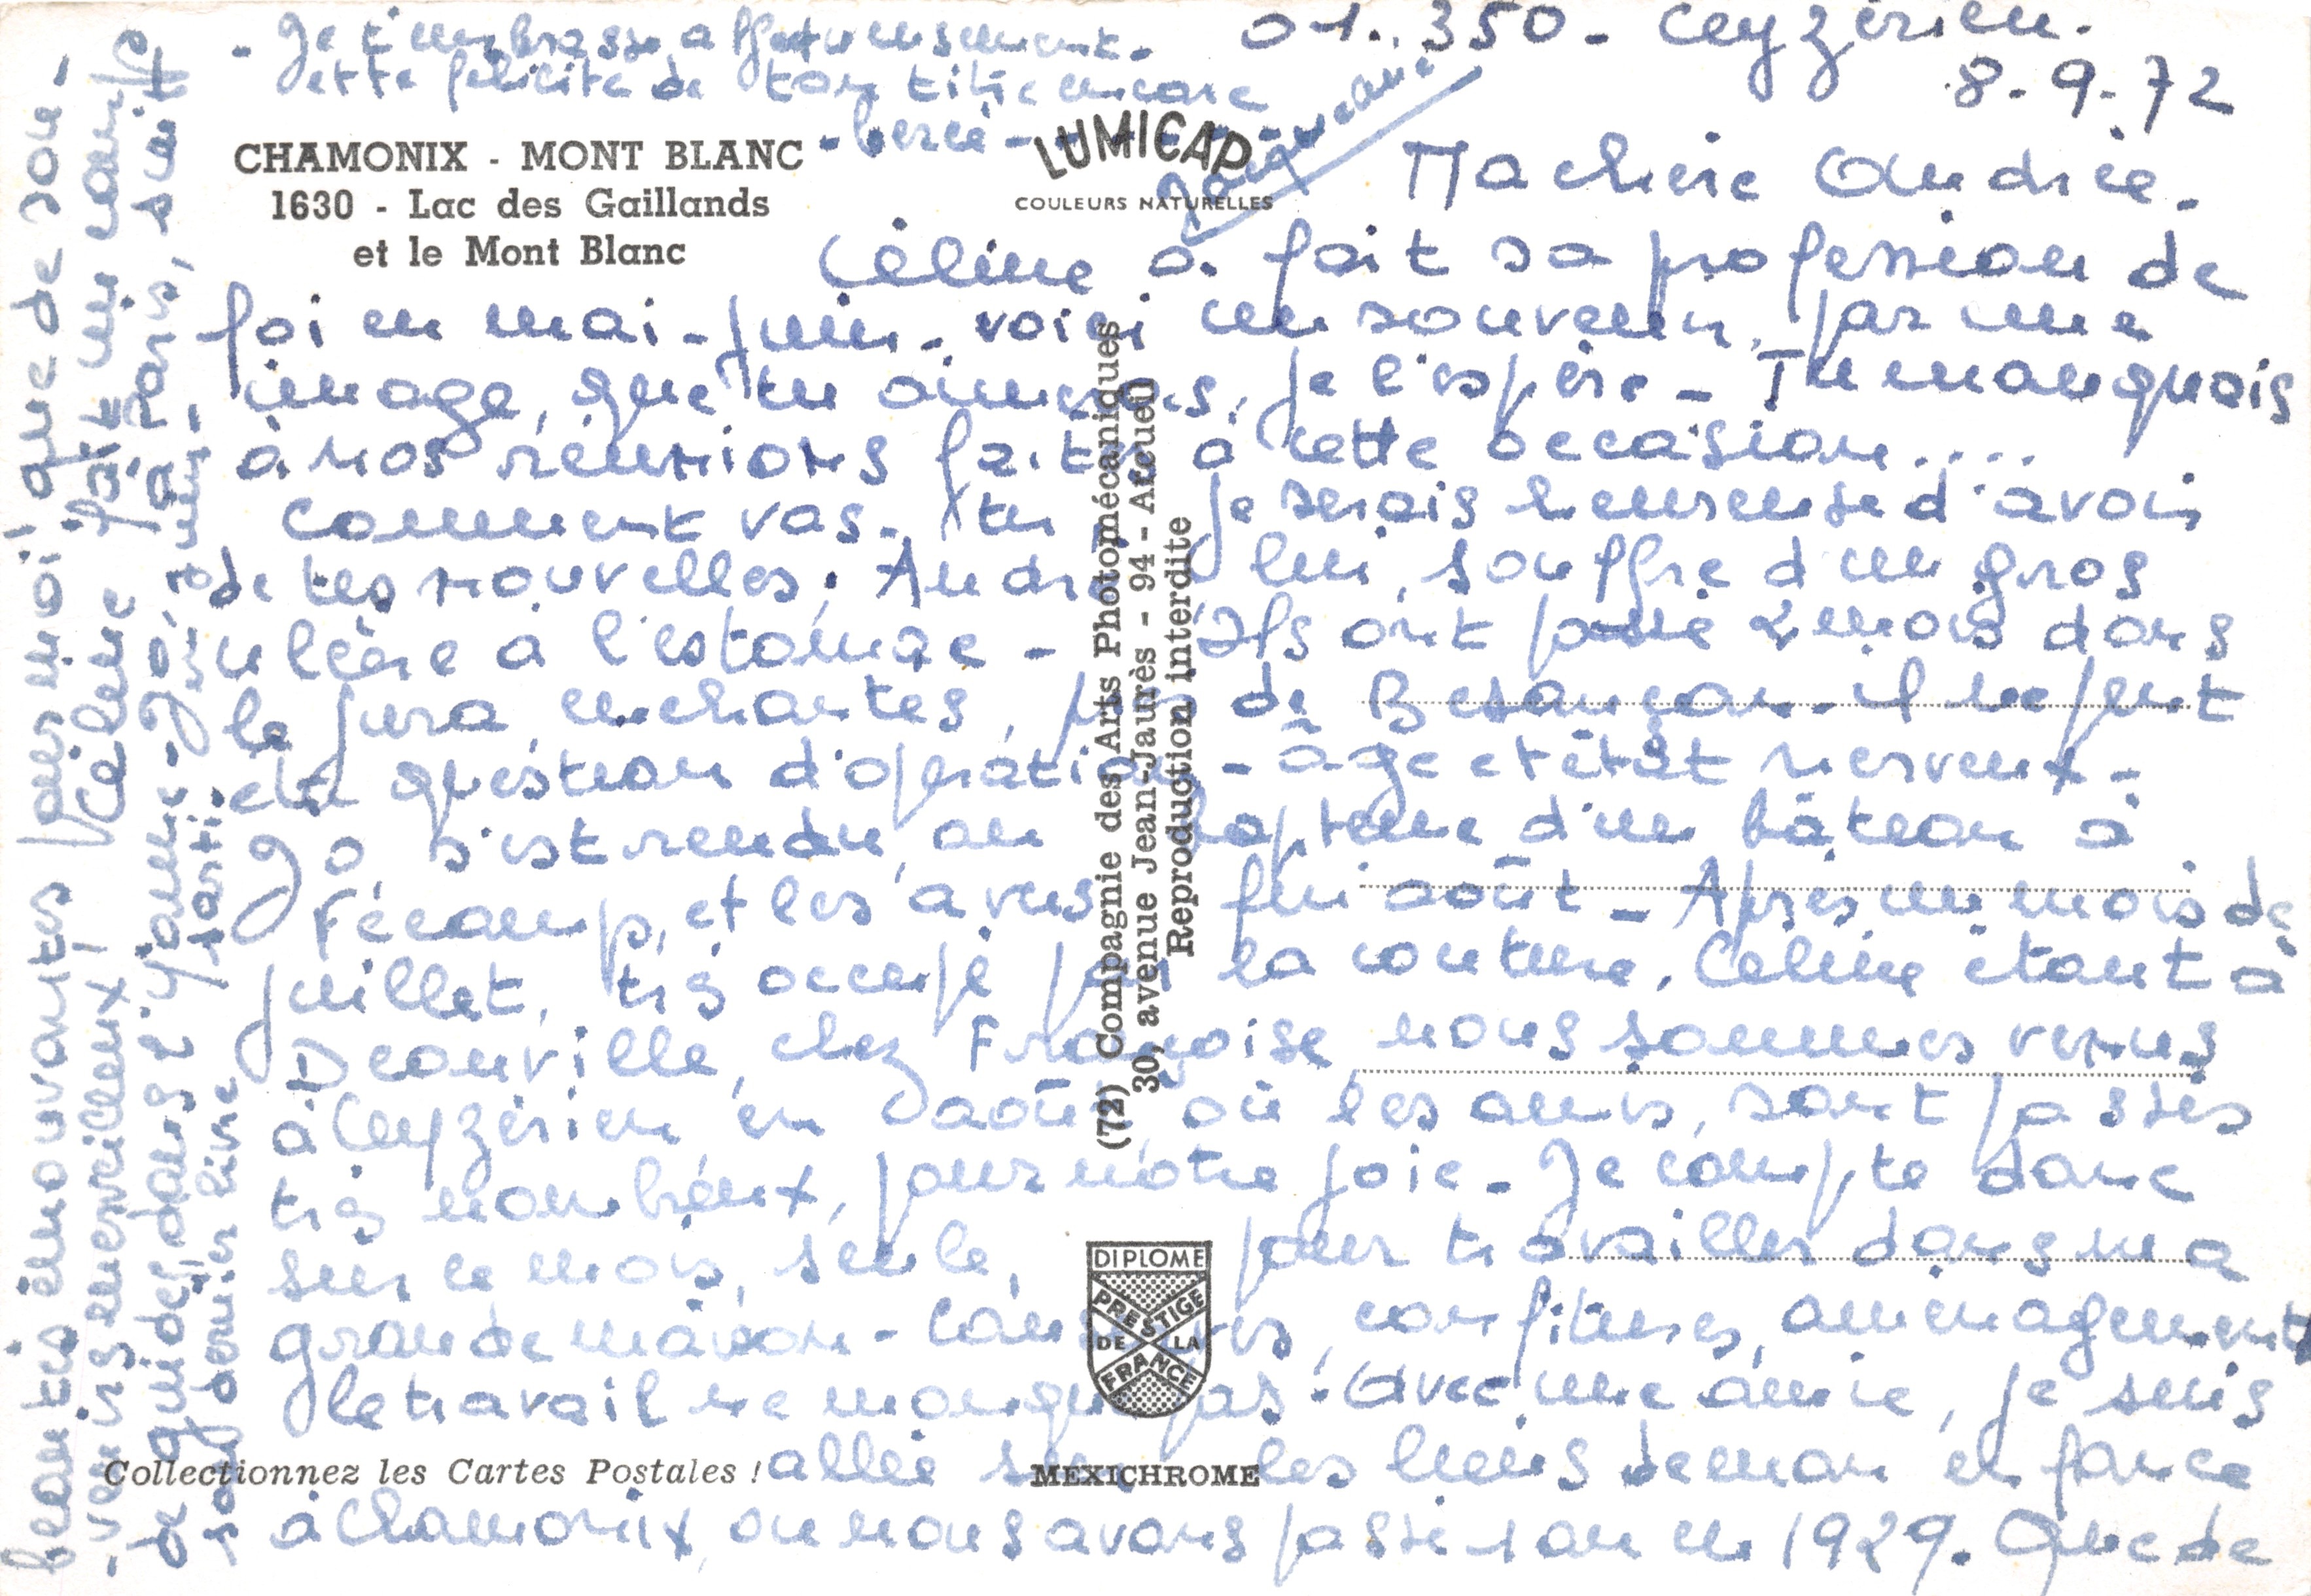 01.350 - Ceyzérieu.
8.9.72
Ma chère Andrée.
Céline a fait sa profession de
foi en mai-juin - voici un souvenir, par une
image, que tu aimeras, je l'espère - Tu manquais
à nos réunions faites à cette occasion....
Comment vas-tu je serais heureuse d'avoir
de tes nouvelles. André lui, souffre d'un gros
ulcère à l'estomac - Ils ont passé 2 mois dans
le Jura, enchantés, près de Besançon - il ne peut
être question d'opération - âge et état nerveux -
Jo s'est rendu, au baptême d'un bâteau à
Fécamp, et les a vus fin août - Après un mois de
juillet, très occupé par la couture, Céline étant à
Deauville, chez Françoise, nous sommes venus
à Ceyzérieu, en août, où les amis, sont passés
très nombreux, pour notre joie - Je compte donc
sur ce mois, seule, pour travailler dans ma
grande maison - Conserves, confitures, aménagement
le travail ne manque pas ! Avec une amie, je suis
allée sur les lieux de mon enfance
à Chamonix, où nous avons passé 1 an en 1929. Que de
beautés émouvantes pour moi ! que de sou-
-venirs merveilleux ! Céline fait un camp
de guides, dans l'Yonne - Jo, à Paris, suit
son dernier livre
parti.
- Je t'embrasse affectueusement -
et te félicite de ton titre encore
- bercé -
CHAMONIX - MONT BLANC
1630 - Lac des Gaillands
et le Mont Blanc
LUMICAP
COULEURS NATURELLES
(72) Compagnie des Arts Photomécaniques
30, avenue Jean-Jaurès - 94 - Arcueil
Reproduction interdite
DIPLOME
PRESTIGE
DE LA
FRANCE
Collectionnez les Cartes Postales !
MEXICHROME